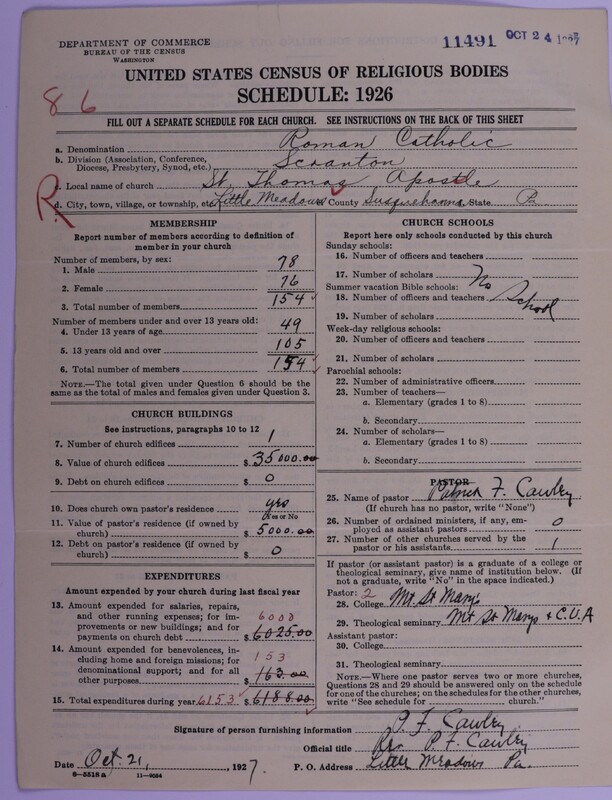 DEPARTMENT OF COMMERCE
BUREAU OF THE CENSUS
WASHINGTON
11491 OCT 24 1927
UNITED STATES CENSUS OF RELIGIOUS BODIES
SCHEDULE: 1926
86
FILL OUT A SEPARATE SCHEDULE FOR EACH CHURCH. SEE INSTRUCTIONS ON THE BACK OF THIS SHEET
a. Denomination Roman Catholic
b. Division (Association, Conference, Diocese, Presbytery, Synod, etc.) Scranton
c. Local name of church St. Thomas Apostle
R
d. City, town, village, or township, etc. Little Meadows County Susquehanna State Pa
MEMBERSHIP
Report number of members according to definition of member in your church
Number of members, by sex:
1. Male 78
2. Female 76
3. Total number of members 154
Number of members under and over 13 years old:
4. Under 13 years of age 49
5. 13 years old and over 105
6. Total number of members 154
NOTE.—The total given under Question 6 should be the same as the total of males and females given under Question 3.
CHURCH BUILDINGS
See instructions, paragraphs 10 to 12
7. Number of church edifices 1
8. Value of church edifices $ 35000.00
9. Debt on church edifices $ 0
10. Does church own pastor's residence? yes
Yes or No
11. Value of pastor's residence (if owned by church) $ 5000.00
12. Debt on pastor's residence (if owned by church) $ 0
EXPENDITURES
Amount expended by your church during last fiscal year
13. Amount expended for salaries, repairs, and other running expenses; for improvements or new buildings; and for payments on church debt 6000 $ 6025.00
14. Amount expended for benevolences, including home and foreign missions; for denominational support; and for all other purposes 153 $ 163.00
15. Total expenditures during year 6153 $ 6188.00
CHURCH SCHOOLS
Report here only schools conducted by this church
Sunday schools:
16. Number of officers and teachers
17. Number of scholars
Summer vacation Bible schools: No School
18. Number of officers and teachers
19. Number of scholars
Week-day religious schools:
20. Number of officers and teachers
21. Number of scholars
Parochial schools:
22. Number of administrative officers
23. Number of teachers—
a. Elementary (grades 1 to 8)
b. Secondary
24. Number of scholars—
a. Elementary (grades 1 to 8)
b. Secondary
PASTOR
25. Name of pastor Patrick F. Cawley
(If church has no pastor, write "None")
26. Number of ordained ministers, if any, employed as assistant pastors 0
27. Number of other churches served by the pastor or his assistants 1
If pastor (or assistant pastor) is a graduate of a college or theological seminary, give name of institution below. (If not a graduate, write "No" in the space indicated.)
Pastor: 2
28. College Mt St Marys
29. Theological seminary Mt St Marys + C.U.A
Assistant pastor:
30. College
31. Theological seminary
NOTE.—Where one pastor serves two or more churches, Questions 28 and 29 should be answered only on the schedule for one of the churches; on the schedules for the other churches, write "See schedule for church."
Signature of person furnishing information P. F. Cawley
Official title Rev. P. F. Cawley
Date Oct. 21, 1927. P. O. Address Little Meadows Pa.
8—5518a 11—9684